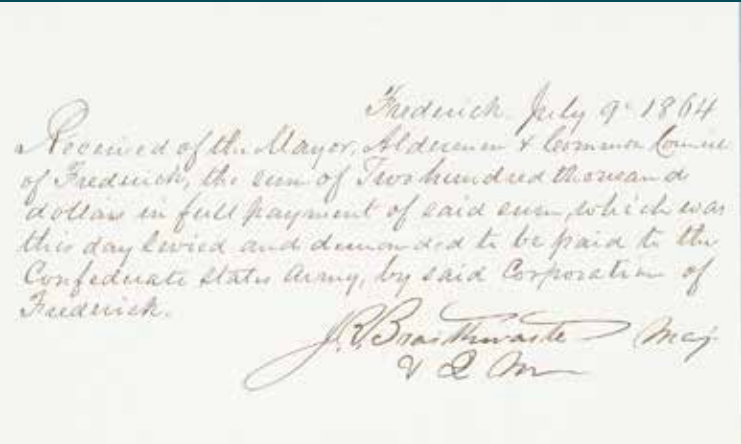 Frederick July 9th 1864
Received of the Mayor, Aldermen & Common Council
of Frederick, the sum of Two hundred thousand
dollars in full payment of said sum, which was
this day levied and demanded to be paid to the
Confederate States Army, by said Corporation of
Frederick.
J. R. Braithwaite Maj
& Q M